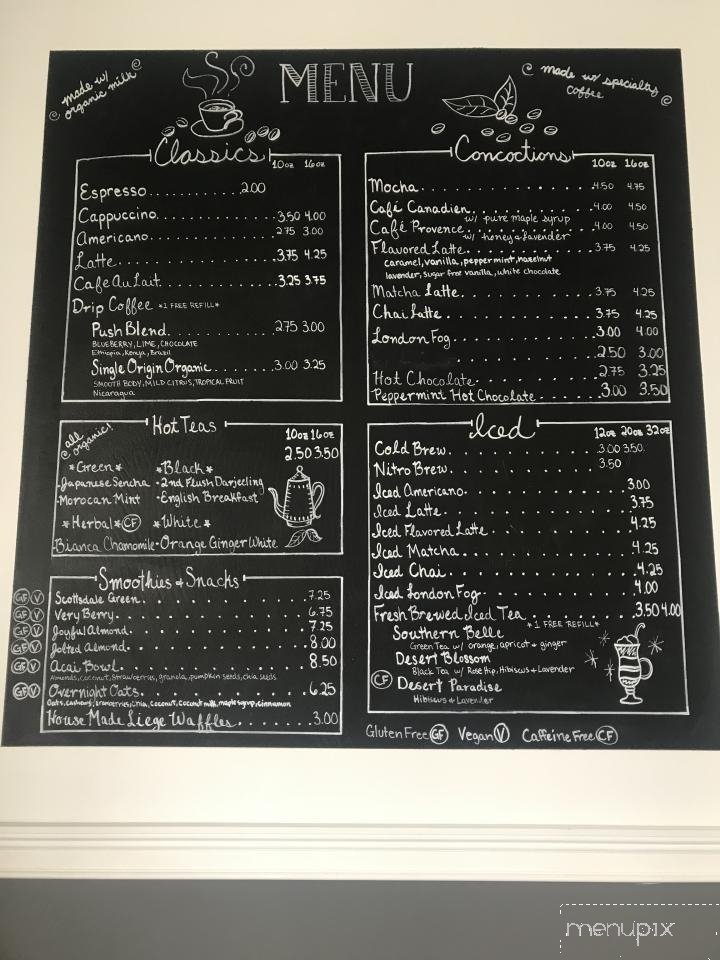 made w/
organic milk
MENU
made w/ specialty
coffee
Classics
10oz 16oz
Espresso 2.00
Cappuccino 3.50 4.00
Americano 2.75 3.00
Latte 3.75 4.25
Cafe Au Lait 3.25 3.75
Drip Coffee *1 FREE REFILL*
Push Blend 2.75 3.00
BLUEBERRY, LIME, CHOCOLATE
Ethiopia, Kenya, Brazil
Single Origin Organic 3.00 3.25
SMOOTH BODY, MILD CITRUS, TROPICAL FRUIT
Nicaragua
Concoctions
10oz 16oz
Mocha 4.50 4.75
Café Canadien 4.00 4.50
w/ pure maple syrup
Café Provence 4.00 4.50
w/ honey & lavender
Flavored Latte 3.75 4.25
caramel, vanilla, peppermint, hazelnut
lavender, sugar free vanilla, white chocolate
Matcha Latte 3.75 4.25
Chai Latte 3.75 4.25
London Fog 3.00 4.00
2.50 3.00
Hot Chocolate 2.75 3.25
Peppermint Hot Chocolate 3.00 3.50
Hot Teas
all
organic!
10oz 16oz
2.50 3.50
*Green* *Black*
•Japanese Sencha •2nd Flush Darjeeling
•Morocan Mint •English Breakfast
*Herbal* CF *White*
•Bianca Chamomile •Orange Ginger White
Iced
12oz 20oz 32oz
Cold Brew 3.00 3.50
Nitro Brew 3.50
Iced Americano 3.00
Iced Latte 3.75
Iced Flavored Latte 4.25
Iced Matcha 4.25
Iced Chai 4.25
Iced London Fog 4.00
Fresh Brewed Iced Tea 3.50 4.00
*1 FREE REFILL*
Southern Belle
Green Tea w/ orange, apricot & ginger
Desert Blossom
Black Tea w/ Rose Hip, Hibiscus & Lavender
CF Desert Paradise
Hibiscus & Lavender
Smoothies & Snacks
GF V Scottsdale Green 7.25
GF V Very Berry 6.75
GF V Joyful Almond 7.25
GF V Jolted Almond 8.00
GF V Acai Bowl 8.50
Almonds, Coconut, Strawberries, granola, pumpkin seeds, chia seeds
GF V Overnight Oats 6.25
Oats, cashews, cranberries, chia, coconut, coconut milk, maple syrup, cinnamon
House Made Liege Waffles 3.00
Gluten Free GF Vegan V Caffeine Free CF
menupix